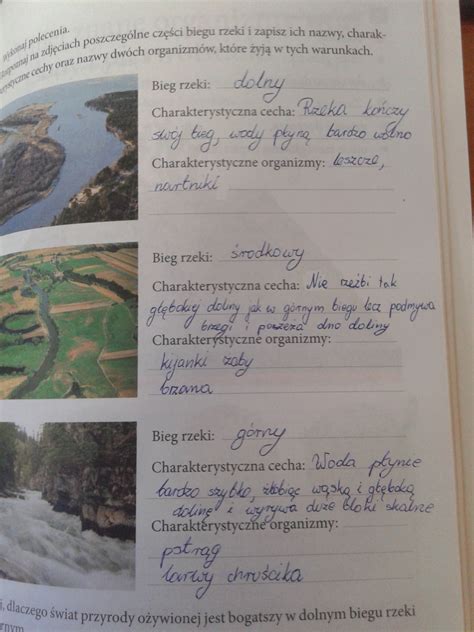 Wykonaj polecenia.
Rozpoznaj na zdjęciach poszczególne części biegu rzeki i zapisz ich nazwy, charak-
terystyczne cechy oraz nazwy dwóch organizmów, które żyją w tych warunkach.
Bieg rzeki: dolny
Charakterystyczna cecha: Rzeka kończy
swój bieg, wody płyną bardzo wolno
Charakterystyczne organizmy: leszcze,
nartniki
Bieg rzeki: środkowy
Charakterystyczna cecha: Nie rzeźbi tak
głębokiej doliny jak w górnym biegu lecz podmywa
brzegi i poszerza dno doliny
Charakterystyczne organizmy:
kijanki żaby
brzana
Bieg rzeki: górny
Charakterystyczna cecha: Woda płynie
bardzo szybko, żłobiąc wąską i głęboką
dolinę i wyrywa duże bloki skalne
Charakterystyczne organizmy:
pstrąg
larwy chruścika
dlaczego świat przyrody ożywionej jest bogatszy w dolnym biegu rzeki